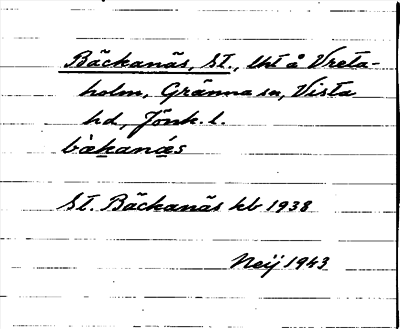 Bäckanäs, St., lht å Vreta-
holm, Gränna sn, Vista
hd, Jönk. l.
bàkanás
St. Bäckanäs kb 1938
Neij 1943